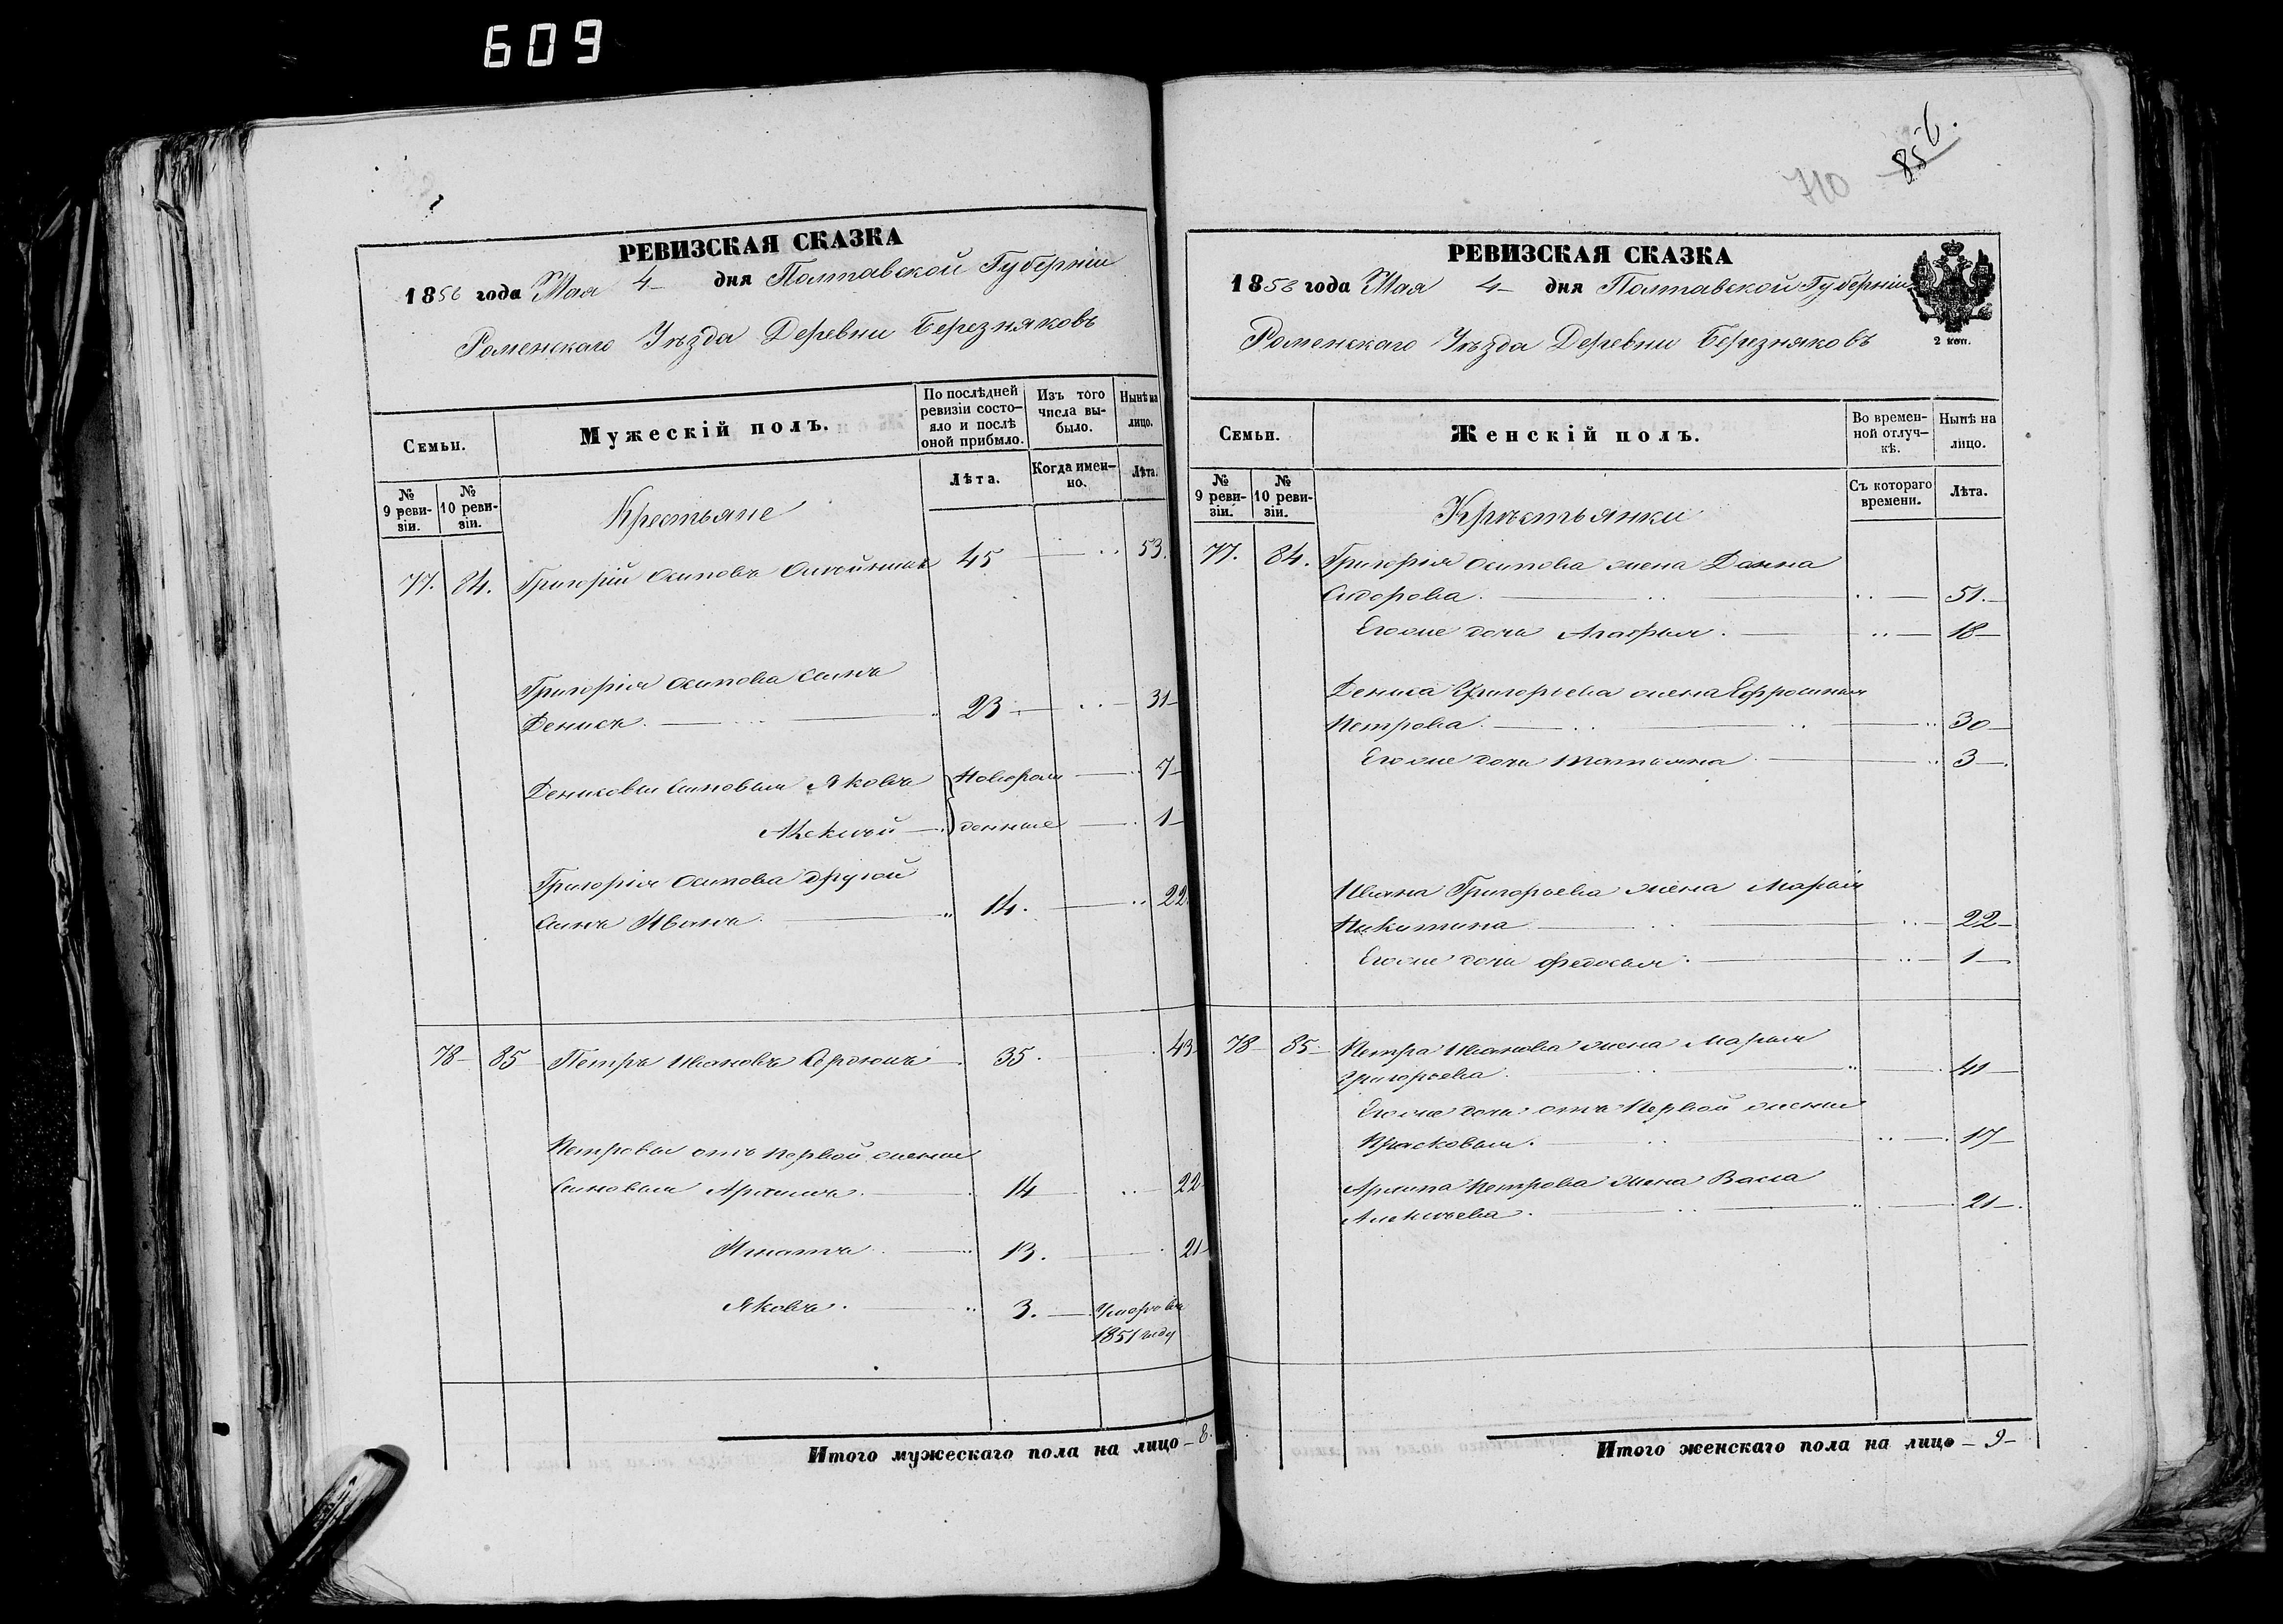 609
РЕВИЗСКАЯ СКАЗКА
1858 года Мая 4 дня Полтавской Губерніи
Роменскаго Уѣзда Деревни Березняковъ
Семьи.
Мужескій полъ.
По послѣдней ревизіи состояло и послѣ оной прибыло.
Изъ того числа выбыло.
Нынѣ на лицо.
№ 9 ревизіи.
№ 10 ревизіи.
Лѣта.
Когда именно.
Лѣта.
Крестьяне
77. 84. Григорій Осиповъ 45 53.
Григорія Осипова сынъ
Денисъ. 23 31
Денисовы сыновья Яковъ Новорож 7
Алексѣй денные 1
Григорія Осипова другой
сынъ Иванъ 14. 22.
78 85 Петръ Ивановъ 35. 43
Петровы отъ первой жены
сыновья Архипъ 14 22
Игнатъ 13. 21
Яковъ. 3. Умеръ въ
1851 году
Итого мужескаго пола на лицо 8.
710 856.
РЕВИЗСКАЯ СКАЗКА
1858 года Мая 4 дня Полтавской Губерніи
Роменскаго Уѣзда Деревни Березняковъ
2 коп.
Семьи.
Женскій полъ.
Во временной отлучкѣ.
Нынѣ на лицо.
№ 9 ревизіи.
№ 10 ревизіи.
Съ котораго времени.
Лѣта.
Крѣстьянки
77. 84. Григорія Осипова жена
Сидорова. 51.
Его же дочь Агафья. 18
Дениса Григорьева жена Ефросинья
Петрова. 30
Его же дочь Татьяна 3
Ивана Григорьева жена Марья
Никитина 22
Его же дочь Федосья. 1
78 85 Петра Иванова жена Марья
Григорьева. 41
Его же дочь отъ первой жены
Прасковья. 17
Архипа Петрова жена Васса
Алексѣева. 21.
Итого женскаго пола на лицо 9